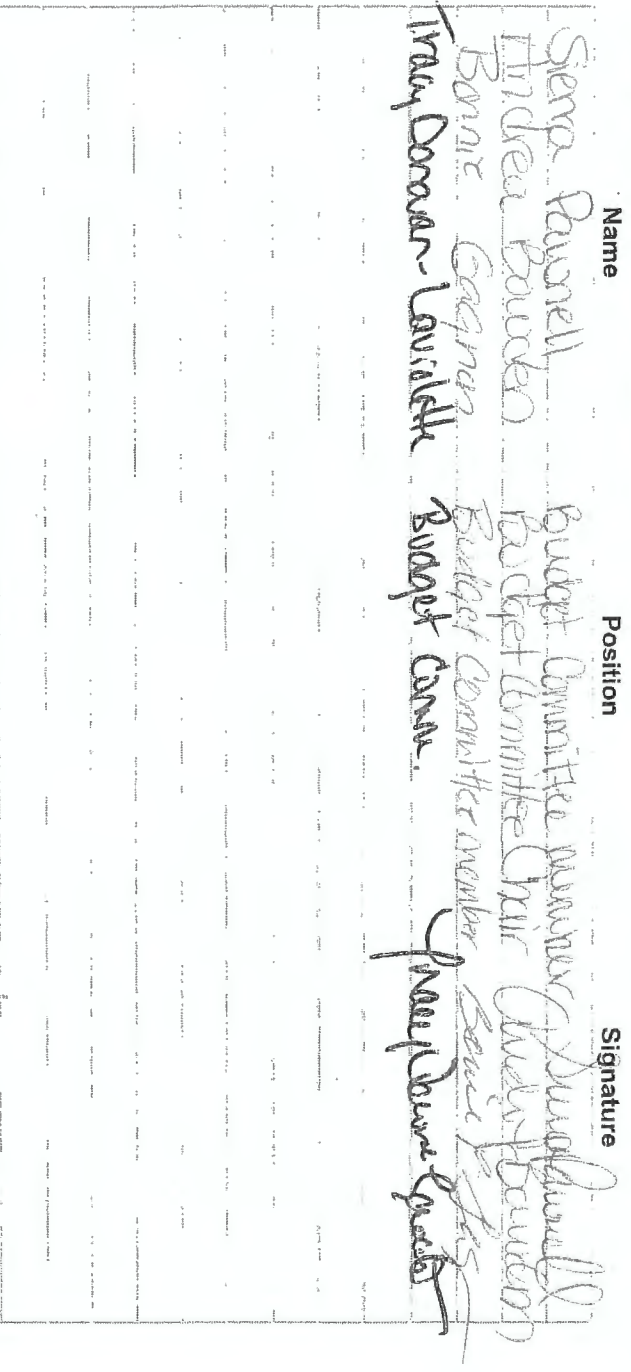 Name Position Signature
Sierra Pawnell Budget Committee member
Andrea Bowden Budget Committee Chair
Bonnie Gagnon Budget Committee member Bonnie
Tracy Donovan-Laviolette Budget Comm.